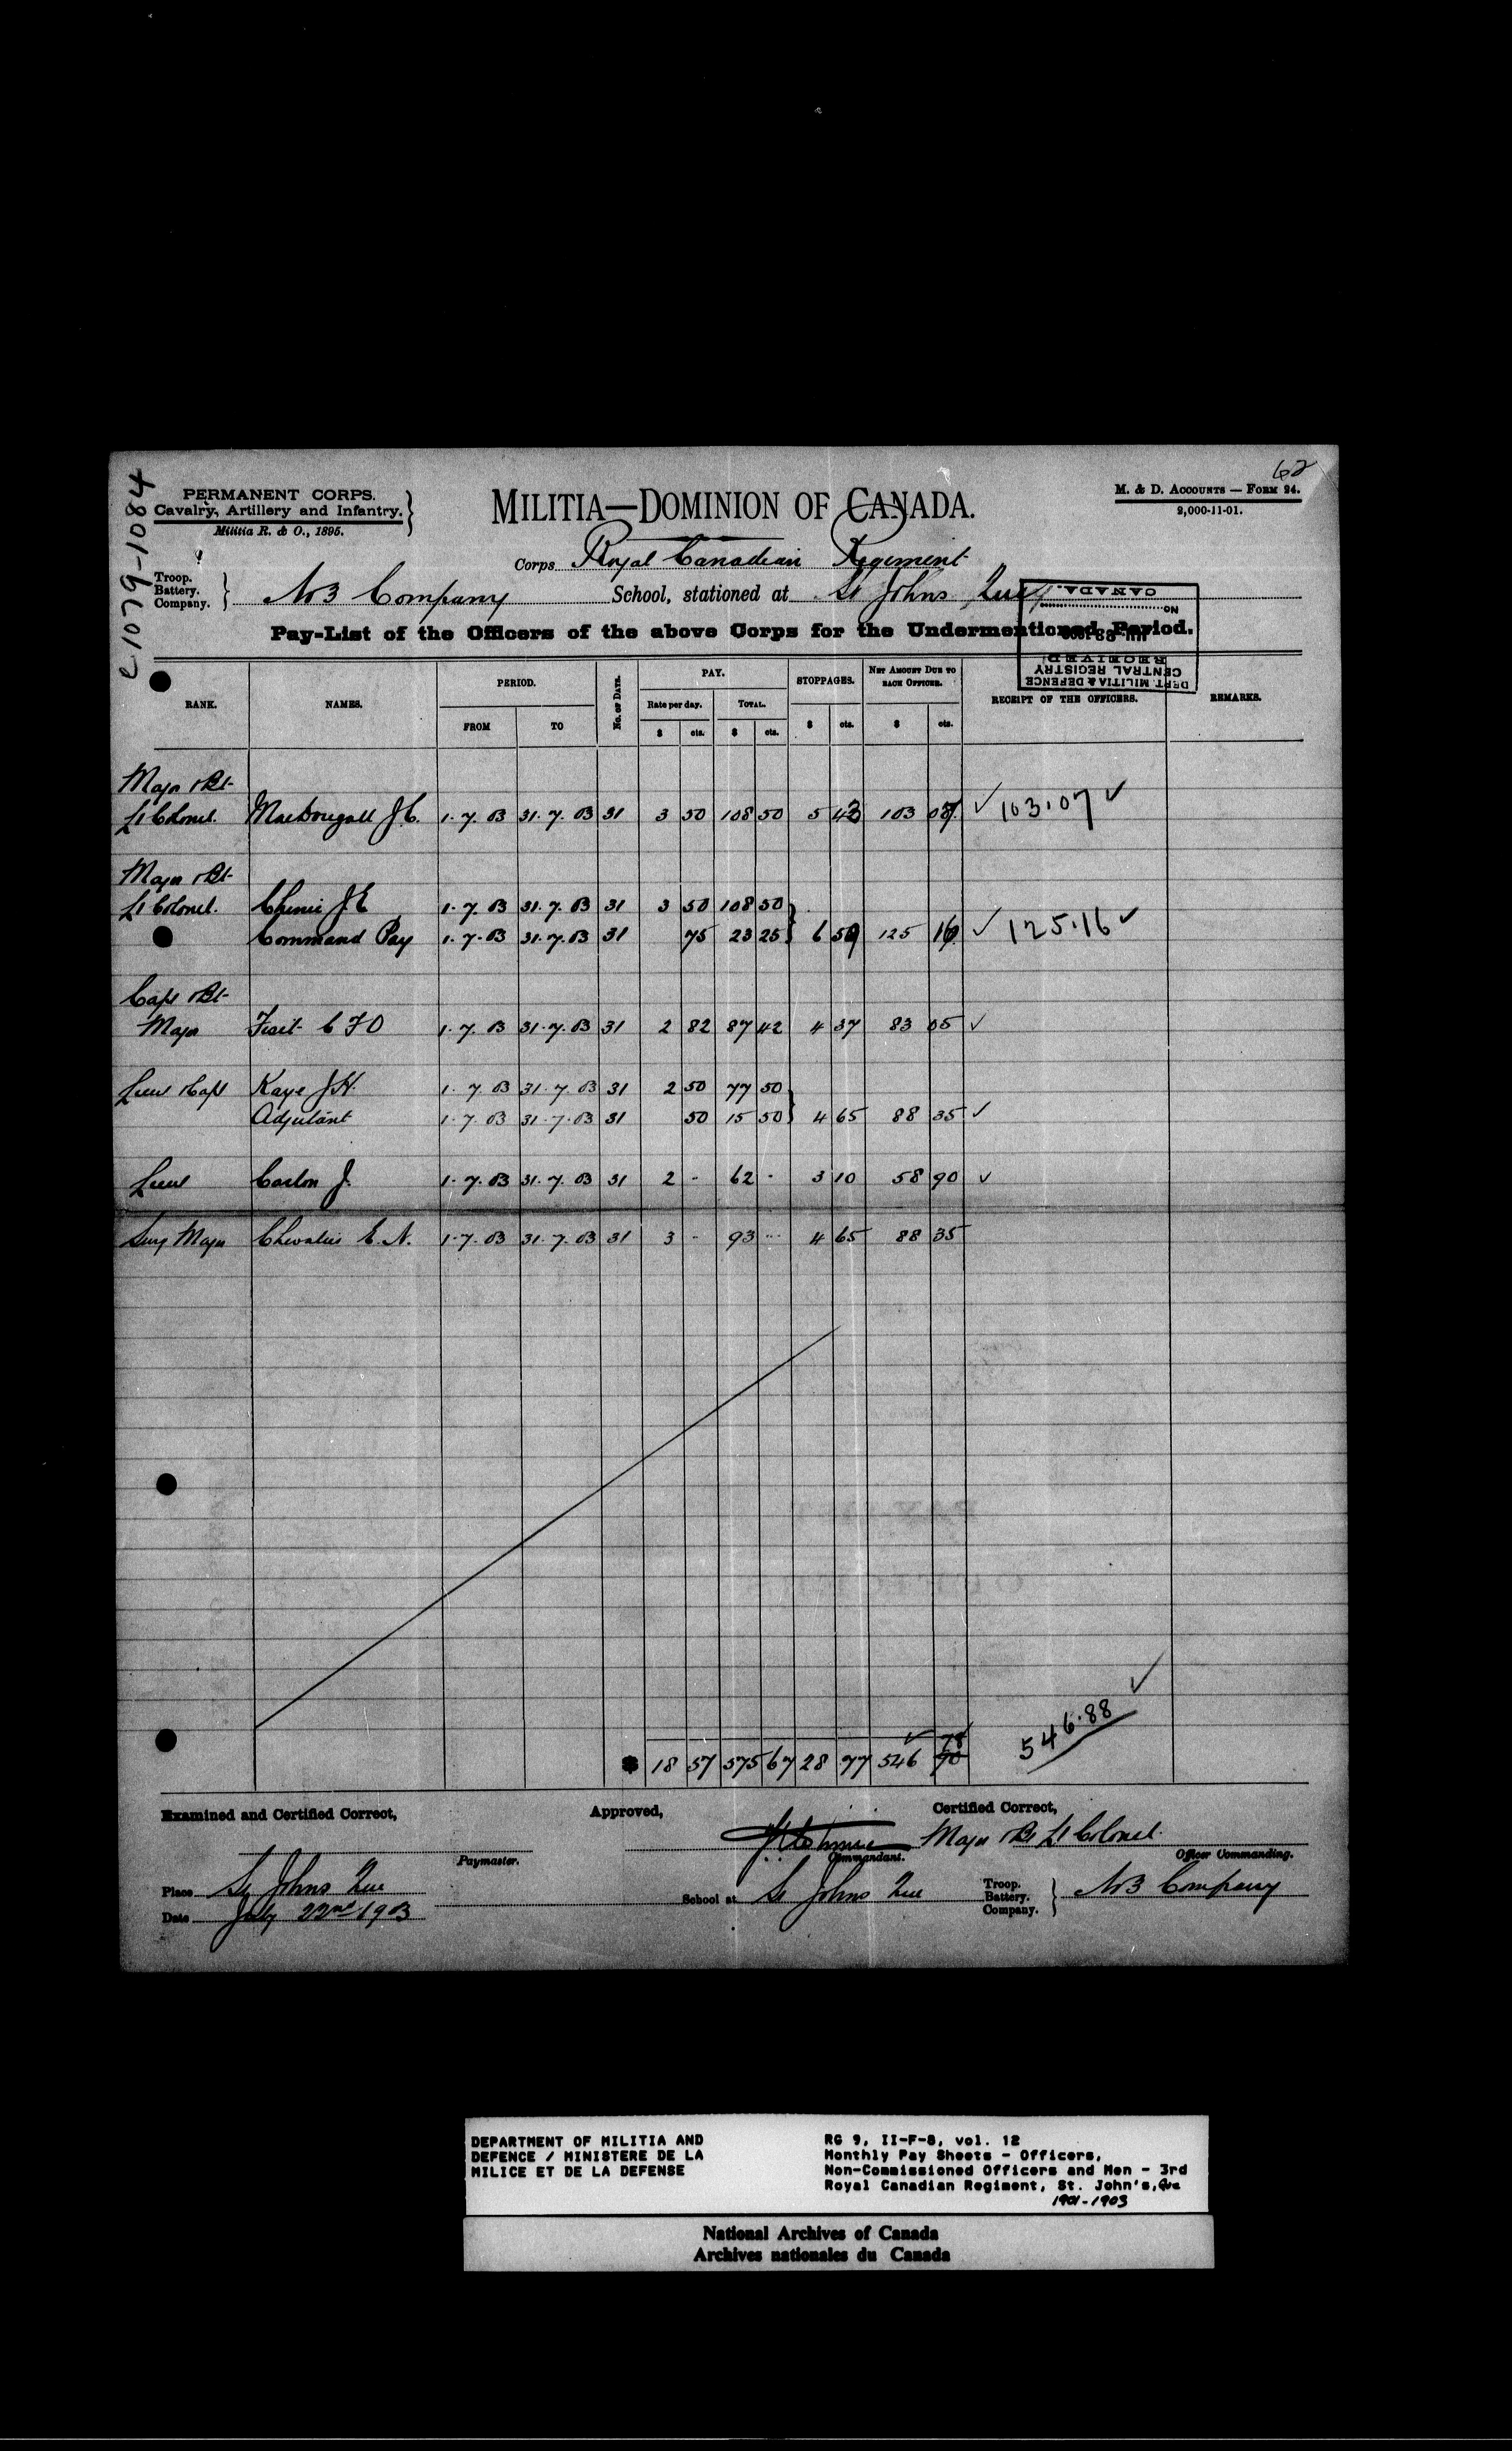 62
e1079-1084
PERMANENT CORPS.
Cavalry, Artillery and Infantry.
Militia R. & O., 1895.
MILITIA—DOMINION OF CANADA.
M. & D. ACCOUNTS — FORM 24.
2,000-11-01.
Corps Royal Canadian Regiment
Troop.
Battery.
Company.
No 3 Company School, stationed at St Johns Que
Pay-List of the Officers of the above Corps for the Undermentioned Period.
DEPT. MILITIA & DEFENCE
CENTRAL REGISTRY
RECEIVED
NO
CANADA.
RANK. NAMES. PERIOD. No. OF DAYS. PAY. STOPPAGES. NET AMOUNT DUE TO EACH OFFICER. RECEIPT OF THE OFFICERS. REMARKS.
FROM TO Rate per day. TOTAL.
$ cts. $ cts. $ cts. $ cts.
Major & Bt-
Lt Colonel. MacDougall J.C. 1. 7. 03 31. 7. 03 31 3 50 108 50 5 43 103 07 ✓ 103.07 ✓
Major & Bt-
Lt Colonel. Chinic J E 1. 7. 03 31. 7. 03 31 3 50 108 50
Command Pay 1. 7. 03 31. 7. 03 31 75 23 25 } 6 59 125 16 ✓ 125.16 ✓
Capt & Bt-
Major Fiset C F O 1. 7. 03 31. 7. 03 31 2 82 87 42 4 37 83 05 ✓
Lieut & Capt Kaye J.H. 1. 7. 03 31. 7. 03 31 2 50 77 50
Adjutant 1. 7. 03 31. 7. 03 31 50 15 50 } 4 65 88 35 ✓
Lieut Carlon J. 1. 7. 03 31. 7. 03 31 2 - 62 - 3 10 58 90 ✓
Surg Major Chevalier E. N. 1. 7. 03 31. 7. 03 31 3 - 93 - 4 65 88 35
546.88 ✓
18 57 575 67 28 77 546 90
Examined and Certified Correct, Approved, Certified Correct,
J E Chinic Major & Bt Lt Colonel.
Paymaster. Commandant. Officer Commanding.
Place St Johns Que School at St Johns Que Troop.
Battery.
Company. } No 3 Company
Date July 22nd 1903
DEPARTMENT OF MILITIA AND
DEFENCE / MINISTERE DE LA
MILICE ET DE LA DEFENSE
RG 9, II-F-8, vol. 12
Monthly Pay Sheets - Officers,
Non-Commissioned Officers and Men - 3rd
Royal Canadian Regiment, St. John's, Que
1901-1903
National Archives of Canada
Archives nationales du Canada